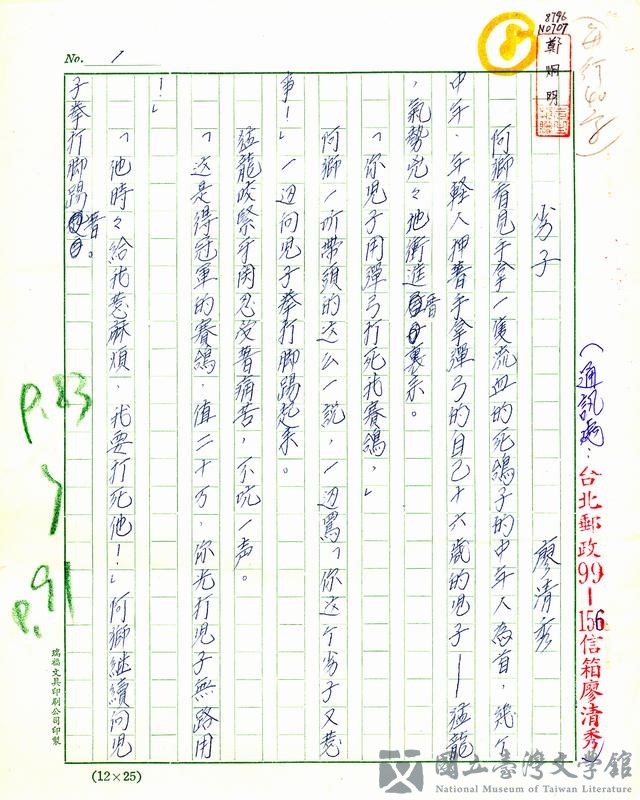 8796
N0707
鄭烱明
8
(每行40字)
No. 1
(通訊處:台北郵政99-156信箱廖清秀)
劣子
廖清秀
何鄉看見手拿一隻流血的死鴿子的中年人為首,幾个
中年、年軽人押著手拿彈弓的自己十六歲的児子——猛龍
,氣勢兇々地衝進暦裏來。
「你児子用彈弓打死我賽鴿,」
何鄉一听帶頭的这么一説,一边罵「你这个劣子又惹
事!」一边向児子拳打脚踢起來。
猛龍咬緊牙関忍受著痛苦,不吭一声。
「这是得冠軍的賽鴿,值二十万,你光打児子無路用
!」
「他時々給我惹麻煩,我要打死他!」何鄉継續向児
子拳打脚踢著。
p.83
p.91
瑞福文具印刷公司印製
(12×25)
國立臺灣文學館
National Museum of Taiwan Literature